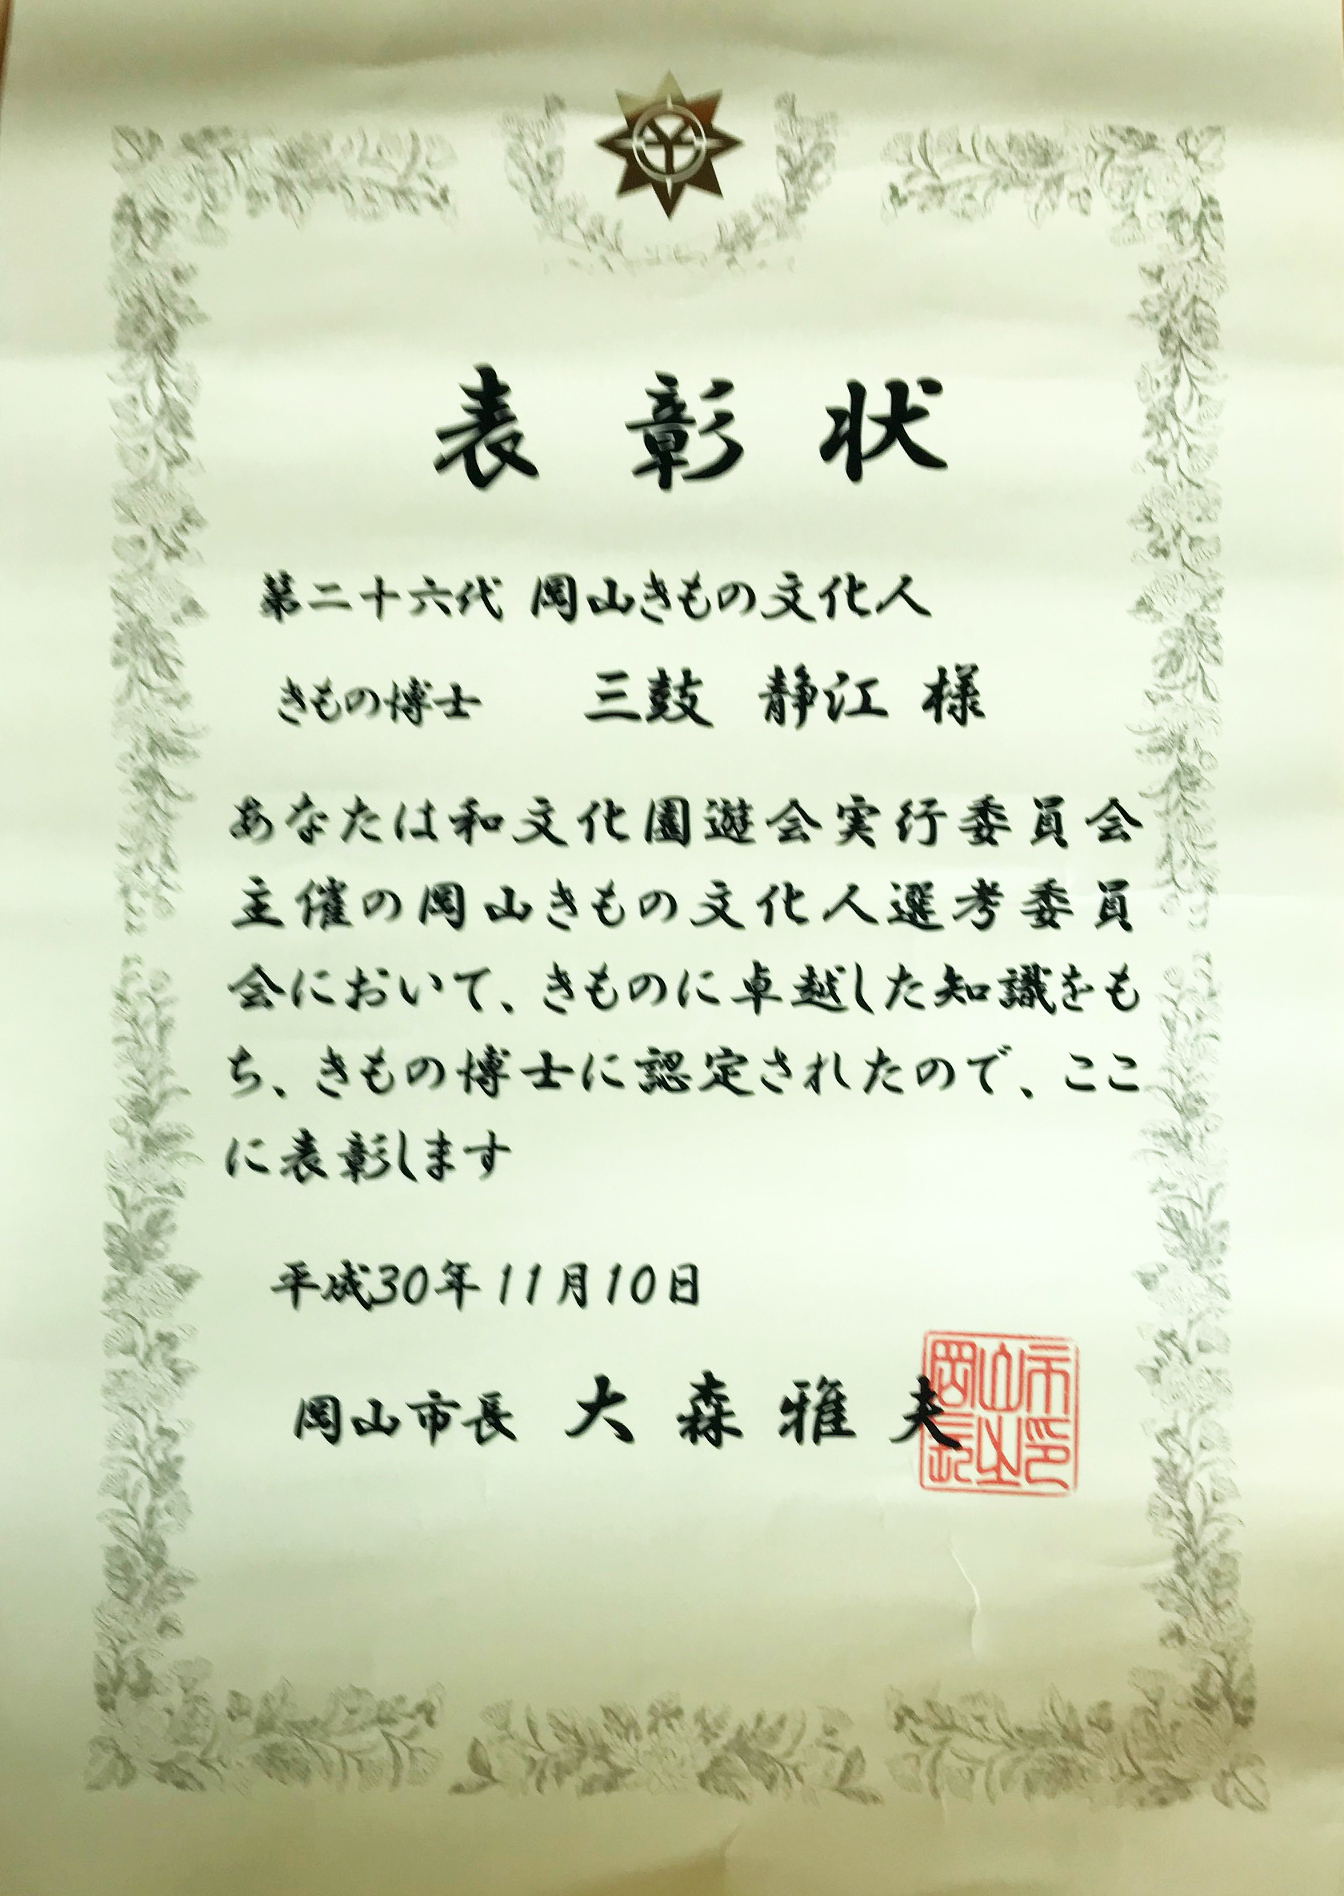 表彰状
第二十六代 岡山きもの文化人
きもの博士 三鼓 静江 様
あなたは和文化園遊会実行委員会
主催の岡山きもの文化人選考委員
会において、きものに卓越した知識をも
ち、きもの博士に認定されたので、ここ
に表彰します
平成30年11月10日
岡山市長 大森雅夫
岡山市長之印